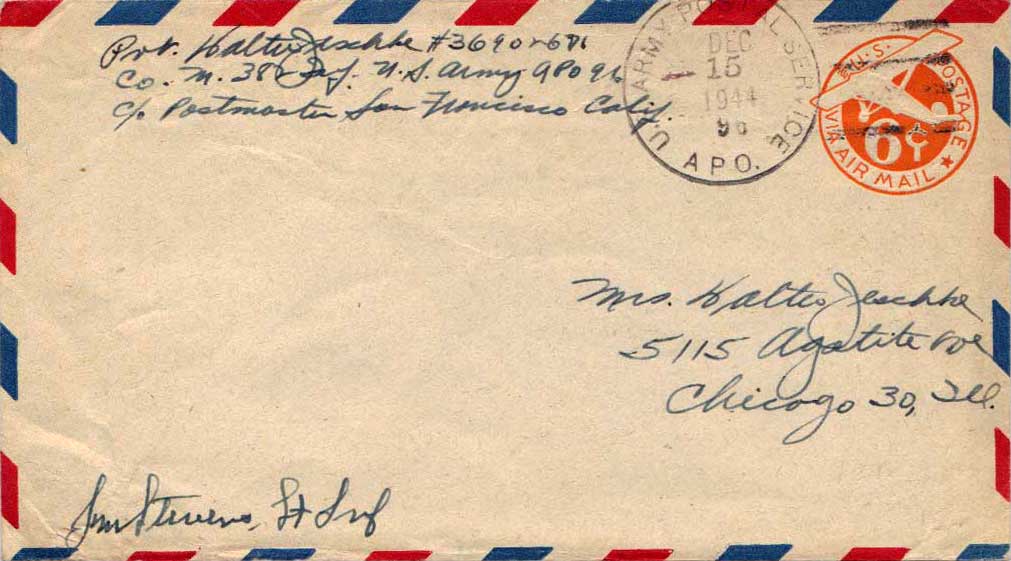 Pvt. Walter Jeschke #36902671
Co. M. 382 Inf. U.S. Army APO 96
c/o Postmaster San Francisco Calif.
U.S. ARMY POSTAL SERVICE
DEC
15
1944
96
A.P.O.
U.S. POSTAGE
6¢
VIA AIR MAIL
Mrs. Walter Jeschke
5115 Agatite Ave
Chicago 30, Ill.
Stevens, Lt Inf